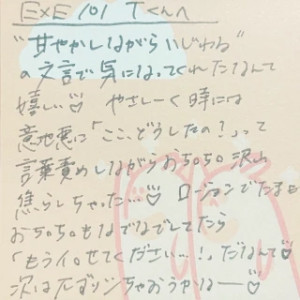 EXE 101 Tくんへ
"甘やかしながらいじわる"
の文言で気になってくれたなんて
嬉しい♡ やさしーく時には
意地悪に「ここ、どうしたの？」って
言葉責めしながらおち○ち○沢山
焦らしちゃった…♡ ローションでたまに
おち○ち○もなでなでしてたら
「もうイ○せてください…！」だなんて♡
次は
ちゃおうかなー♡